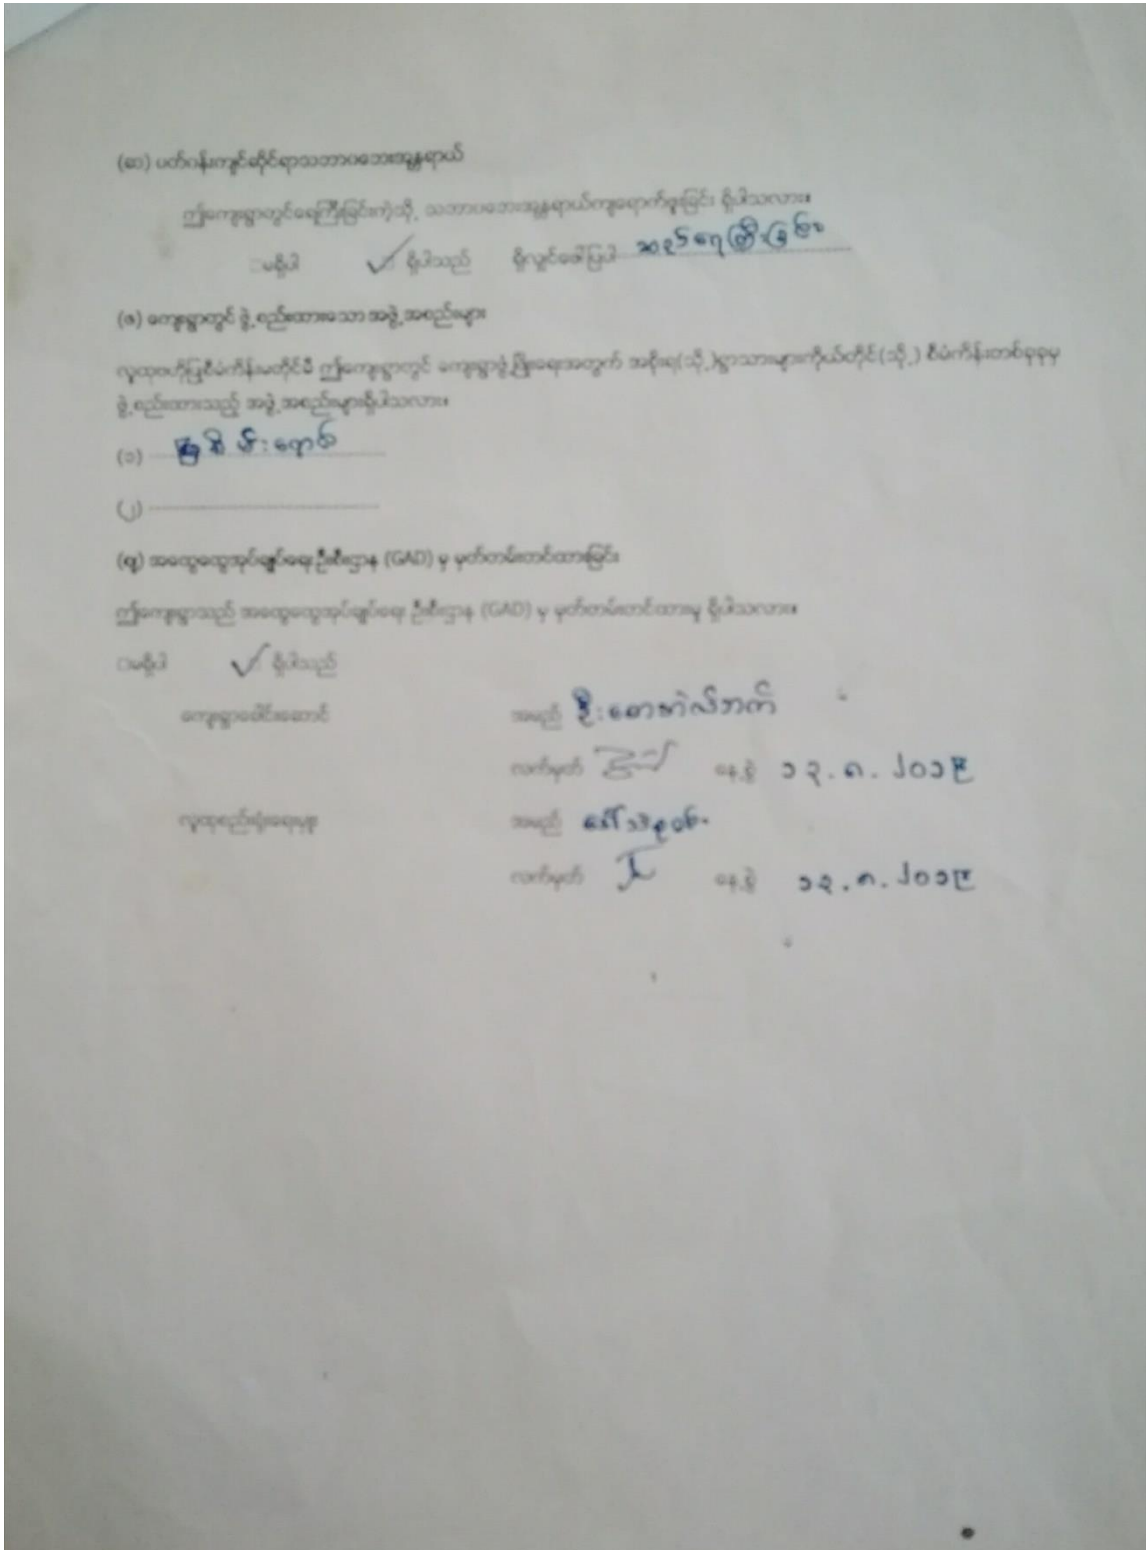 (ဆ) ပတ်ဝန်းကျင်ဆိုင်ရာသဘာဝဘေးအန္တရာယ်
ဤကျေးရွာတွင်ရေကြီးခြင်းကဲ့သို့ သဘာဝဘေးအန္တရာယ်ကျရောက်ဖူးခြင်း ရှိပါသလား။
□မရှိပါ ✓ ရှိပါသည် ရှိလျှင်ဖေါ်ပြပါ ရေကြီးခြင်း
(ဇ) ကျေးရွာတွင် ဖွဲ့စည်းထားသော အဖွဲ့အစည်းများ
လူထုဗဟိုပြုစီမံကိန်းမတိုင်မီ ဤကျေးရွာတွင် ကျေးရွာဖွံ့ဖြိုးရေးအတွက် အစိုးရ(သို့)ရွာသားများကိုယ်တိုင်(သို့) စီမံကိန်းတစ်ခုခုမှ
ဖွဲ့စည်းထားသည့် အဖွဲ့အစည်းများရှိပါသလား။
(၁) မြစိမ်းရောင်
(၂)
(ဈ) အထွေထွေအုပ်ချုပ်ရေးဦးစီးဌာန (GAD) မှ မှတ်တမ်းတင်ထားခြင်း
ဤကျေးရွာသည် အထွေထွေအုပ်ချုပ်ရေး ဦးစီးဌာန (GAD) မှ မှတ်တမ်းတင်ထားမှု ရှိပါသလား။
□မရှိပါ ✓ ရှိပါသည်
ကျေးရွာခေါင်းဆောင် အမည် ဦးစောအဲလ်ဘက်
လက်မှတ် နေ့စွဲ ၁၃.၈.၂၀၁၉
လူထုစည်းရုံးရေးမှူး အမည် ဒေါ်
လက်မှတ် နေ့စွဲ ၁၃.၈.၂၀၁၉